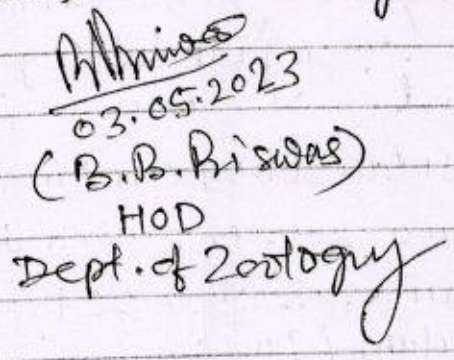 03.05.2023
(B.B. Biswas)
HOD
Dept. of Zoology